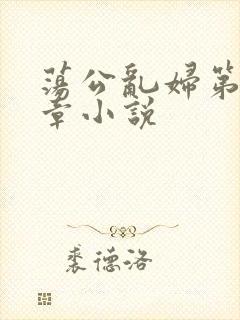 蕩公亂婦第
章小説
裘德洛